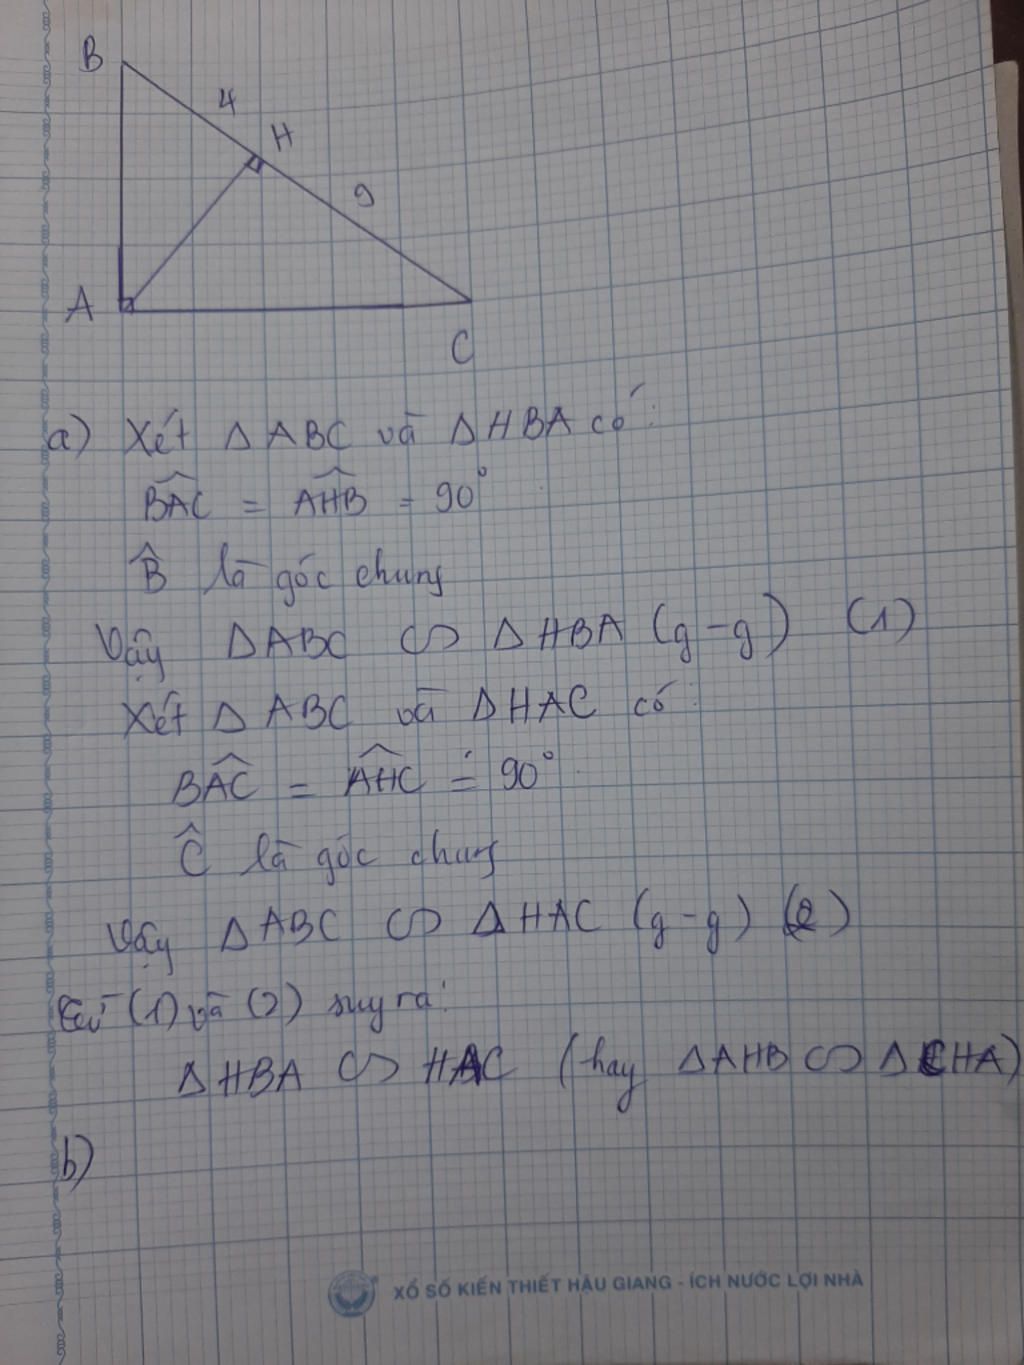 B
4
H
9
A
C
a) Xét Δ ABC và Δ HBA có:
BAC = AHB = 90°
B̂ là góc chung
Vậy ΔABC ∽ ΔHBA (g-g) (1)
Xét Δ ABC và ΔHAC có:
BAC = AHC = 90°
Ĉ là góc chung
Vậy ΔABC ∽ ΔHAC (g-g) (2)
Từ (1) và (2) suy ra:
ΔHBA ∽ HAC (hay ΔAHB ∽ ΔCHA)
b)
XỔ SỐ KIẾN THIẾT HẬU GIANG - ÍCH NƯỚC LỢI NHÀ